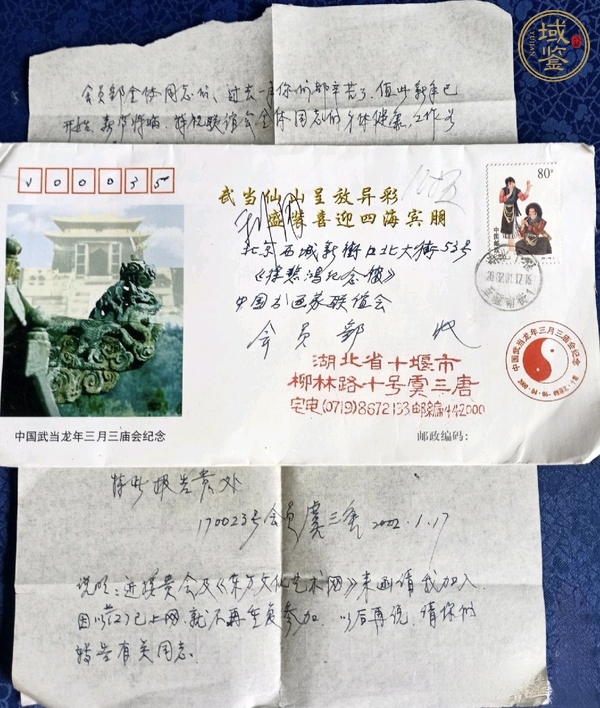 域鉴
YUJIAN
会员部全体同志们、过去一年你们都辛苦了,值此新年已
开始,春节将临,特祝联谊会全体同志们身体健康,工作
V00035
武当仙山呈放异彩
盛装喜迎四海宾朋
80分
中国邮政
北京西城新街口北大街53号
《徐悲鸿纪念馆》
中国书画家联谊会
会员部 收
湖北省十堰市
柳林路十号虞三唐
宅电(0719)8672133邮编442000
中国武当龙年三月三庙会纪念
中国武当龙年三月三庙会纪念
邮政编码:
特此报告贵处
170023号会员虞三唐 2002.1.17
说明:近接贵会及《东方文化艺术网》来函请我加入
因以前已上网,就不再重复参加.以后再说,请你们
转告有关同志。